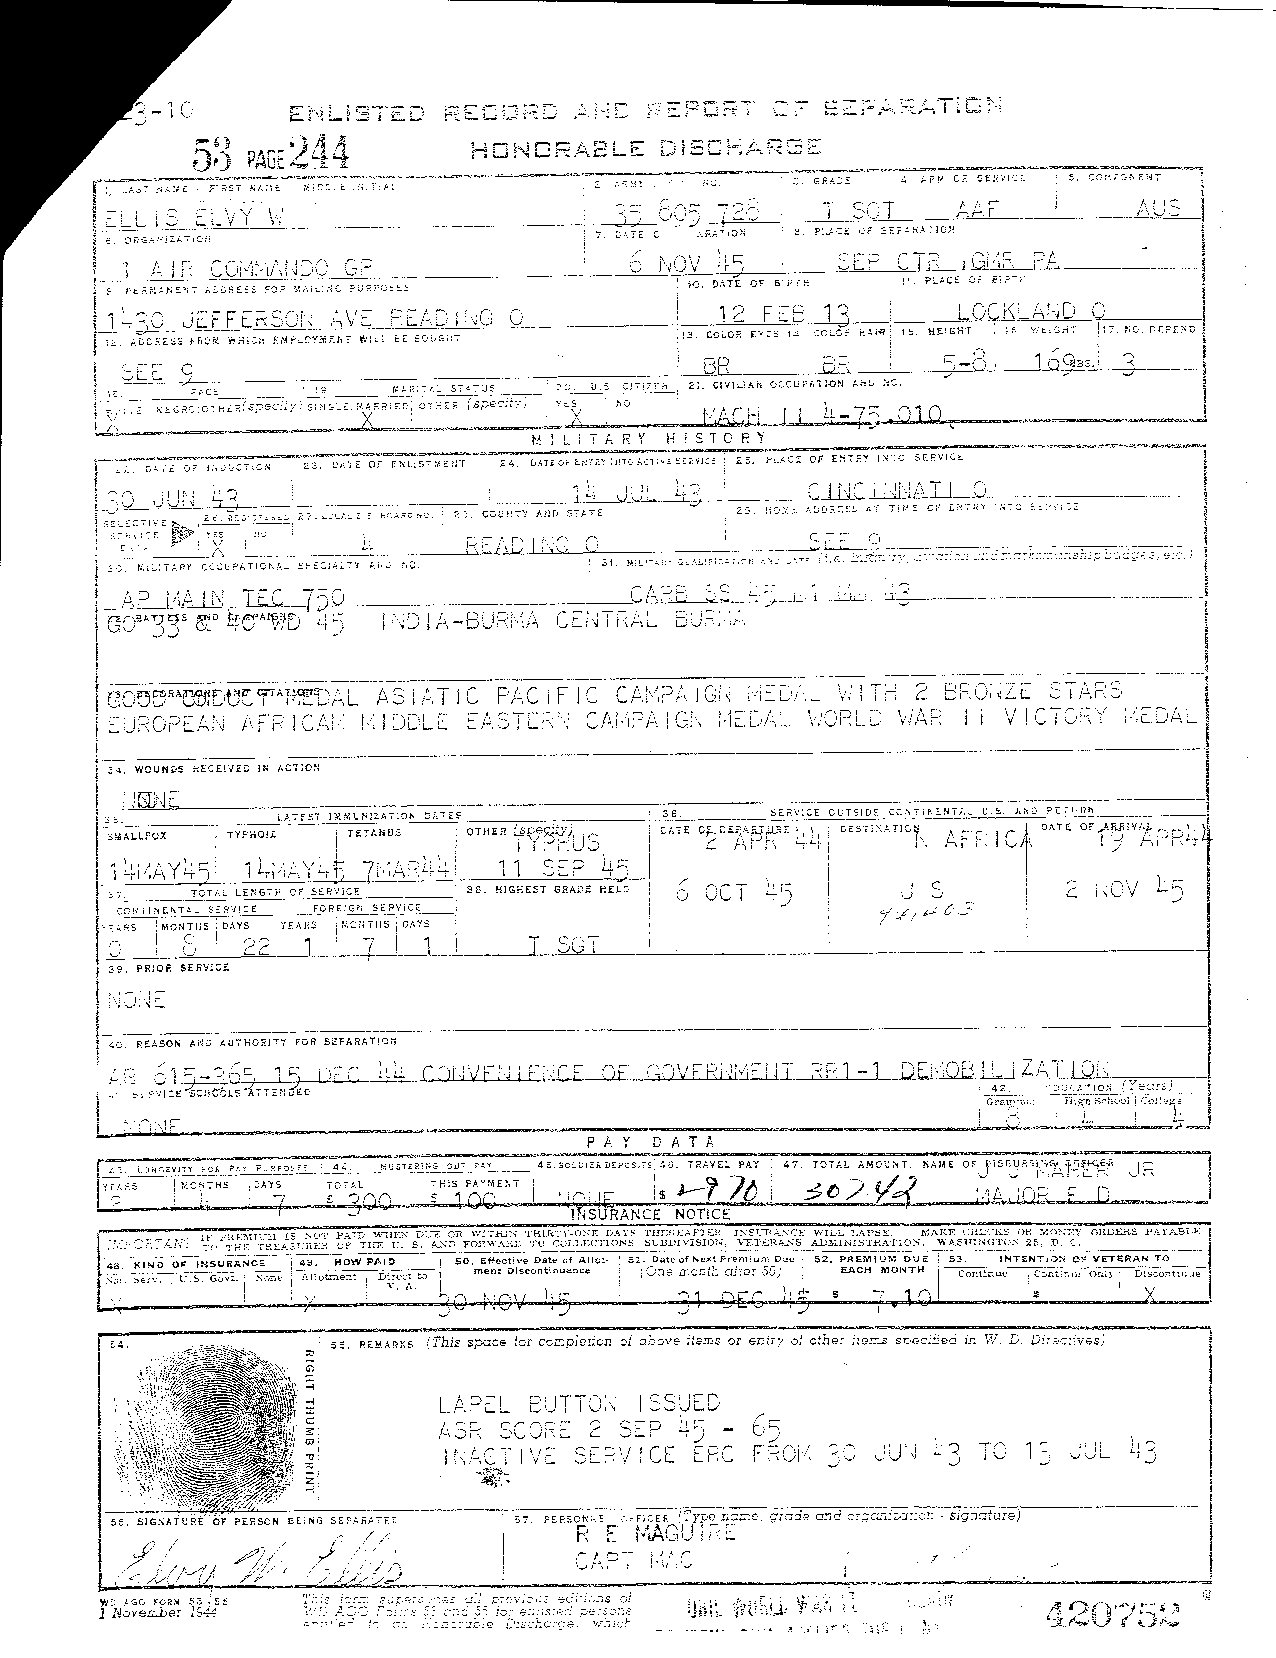 3-10 ENLISTED RECORD AND REPORT OF SEPARATION
53 PAGE 244 HONORABLE DISCHARGE
1. LAST NAME - FIRST NAME - MIDDLE INITIAL 2. ARMY NO. 3. GRADE 4. ARM OR SERVICE 5. COMPONENT
ELLIS ELVY W 35 805 728 T SGT AAF AUS
6. ORGANIZATION 7. DATE OF SEPARATION 8. PLACE OF SEPARATION
1 AIR COMMANDO GP 6 NOV 45 SEP CTR IGMR PA
9. PERMANENT ADDRESS FOR MAILING PURPOSES 10. DATE OF BIRTH 11. PLACE OF BIRTH
1430 JEFFERSON AVE READING O 12 FEB 13 LOCKLAND O
12. ADDRESS FROM WHICH EMPLOYMENT WILL BE SOUGHT 13. COLOR EYES 14. COLOR HAIR 15. HEIGHT 16. WEIGHT 17. NO. DEPEND
SEE 9 BR BR 5-8 169 LBS. 3
18. RACE 19. MARITAL STATUS 20. U.S. CITIZEN 21. CIVILIAN OCCUPATION AND NO.
WHITE NEGRO OTHER (specify) SINGLE MARRIED OTHER (specify) YES NO
X X X MACH II 4-75.010
MILITARY HISTORY
22. DATE OF INDUCTION 23. DATE OF ENLISTMENT 24. DATE OF ENTRY INTO ACTIVE SERVICE 25. PLACE OF ENTRY INTO SERVICE
30 JUN 43 14 JUL 43 CINCINNATI O
SELECTIVE SERVICE DATA 26. REGISTERED 27. LOCAL S.S. BOARD NO. 28. COUNTY AND STATE 29. HOME ADDRESS AT TIME OF ENTRY INTO SERVICE
YES NO
X 4 READING O SEE 9
30. MILITARY OCCUPATIONAL SPECIALTY AND NO. 31. MILITARY QUALIFICATION AND DATE (i.e., infantry, aviation and marksmanship badges, etc.)
AP MAIN TEC 750 CARB SS 45 M1 MM 43
32. BATTLES AND CAMPAIGNS
GO 33 & 40 WD 45 INDIA-BURMA CENTRAL BURMA
33. DECORATIONS AND CITATIONS
GOOD CONDUCT MEDAL ASIATIC PACIFIC CAMPAIGN MEDAL WITH 2 BRONZE STARS
EUROPEAN AFRICAN MIDDLE EASTERN CAMPAIGN MEDAL WORLD WAR II VICTORY MEDAL
34. WOUNDS RECEIVED IN ACTION
NONE
35. LATEST IMMUNIZATION DATES 36. SERVICE OUTSIDE CONTINENTAL U.S. AND RETURN
SMALLPOX TYPHOID TETANUS OTHER (specify) DATE OF DEPARTURE DESTINATION DATE OF ARRIVAL
TYPHUS 2 APR 44 N AFRICA 19 APR44
14MAY45 14MAY45 7MAR44 11 SEP 45
37. TOTAL LENGTH OF SERVICE 38. HIGHEST GRADE HELD 6 OCT 45 U S 2 NOV 45
CONTINENTAL SERVICE FOREIGN SERVICE
YEARS MONTHS DAYS YEARS MONTHS DAYS
0 8 22 1 7 1 T SGT
39. PRIOR SERVICE
NONE
40. REASON AND AUTHORITY FOR SEPARATION
AR 615-365 15 DEC 44 CONVENIENCE OF GOVERNMENT RR1-1 DEMOBILIZATION
41. SERVICE SCHOOLS ATTENDED 42. EDUCATION (Years)
Grammar High School College
NONE 8 4
PAY DATA
43. LONGEVITY FOR PAY PURPOSES 44. MUSTERING OUT PAY 45. SOLDIER DEPOSITS 46. TRAVEL PAY 47. TOTAL AMOUNT, NAME OF DISBURSING OFFICER
YEARS MONTHS DAYS TOTAL THIS PAYMENT J C JR
2 4 7 $ 300 $ 100 NONE $ 2970 30742 MAJOR F D
INSURANCE NOTICE
IMPORTANT IF PREMIUM IS NOT PAID WHEN DUE OR WITHIN THIRTY-ONE DAYS THEREAFTER, INSURANCE WILL LAPSE. MAKE CHECKS OR MONEY ORDERS PAYABLE
TO THE TREASURER OF THE U. S. AND FORWARD TO COLLECTIONS SUBDIVISION, VETERANS ADMINISTRATION, WASHINGTON 25, D. C.
48. KIND OF INSURANCE 49. HOW PAID 50. Effective Date of Allotment Discontinuance 51. Date of Next Premium Due (One month after 50) 52. PREMIUM DUE EACH MONTH 53. INTENTION OF VETERAN TO
Nat. Serv. U.S. Govt. None Allotment Direct to V. A. Continue Continue Only Discontinue
X X 30 NOV 45 31 DEC 45 $ 7.10 $ X
54. RIGHT THUMB PRINT 55. REMARKS (This space for completion of above items or entry of other items specified in W. D. Directives)
LAPEL BUTTON ISSUED
ASR SCORE 2 SEP 45 - 65
INACTIVE SERVICE ERC FROM 30 JUN 43 TO 13 JUL 43
56. SIGNATURE OF PERSON BEING SEPARATED 57. PERSONNEL OFFICER (Type name, grade and organization - signature)
Elvy W. Ellis R E MAGUIRE
CAPT MAC
WD AGO FORM 53-55
1 November 1944
This form supersedes all previous editions of
WD AGO Forms 53 and 55 for enlisted persons
entitled to an Honorable Discharge, which
420752